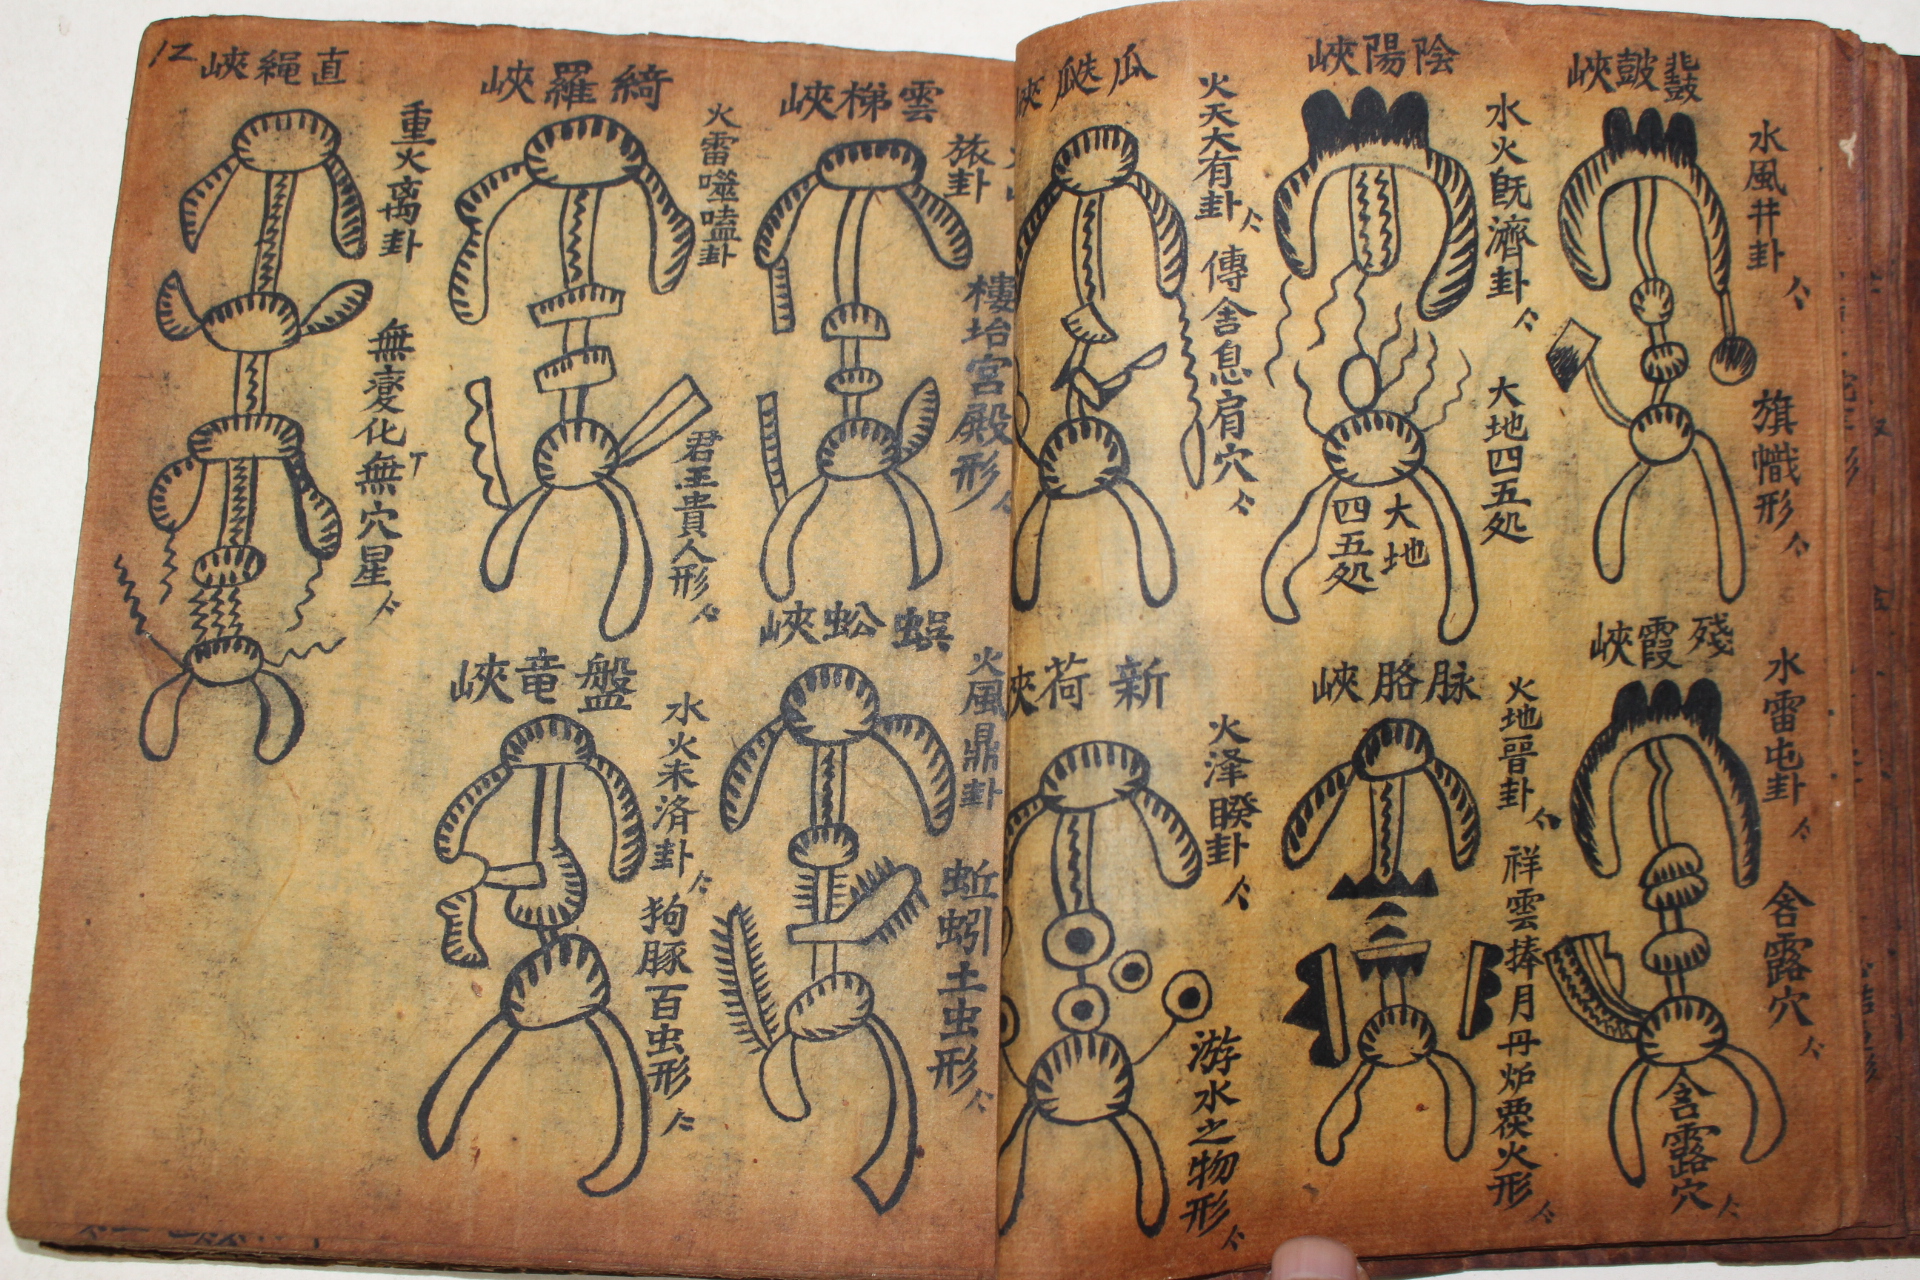 鼓峽
水風井卦
旗幟形
陰陽峽
水火旣濟卦
大地四五処
大地
四五処
瓜瓞峽
火天大有卦
傳舍息肩穴
殘霞峽
水雷屯卦
含露穴
含露穴
脉胳峽
火地晉卦
祥雲捧月丹炉覆火形
新荷峽
火泽睽卦
游水之物形
雲梯峽
旅卦
樓坮宮殿形
綺羅峽
火雷噬嗑卦
君王貴人形
直縄峽
重火离卦
無変化無穴星
12
蜈蚣峽
火風鼎卦
蚯蚓土虫形
盤竜峽
水火未済卦
狗豚百虫形